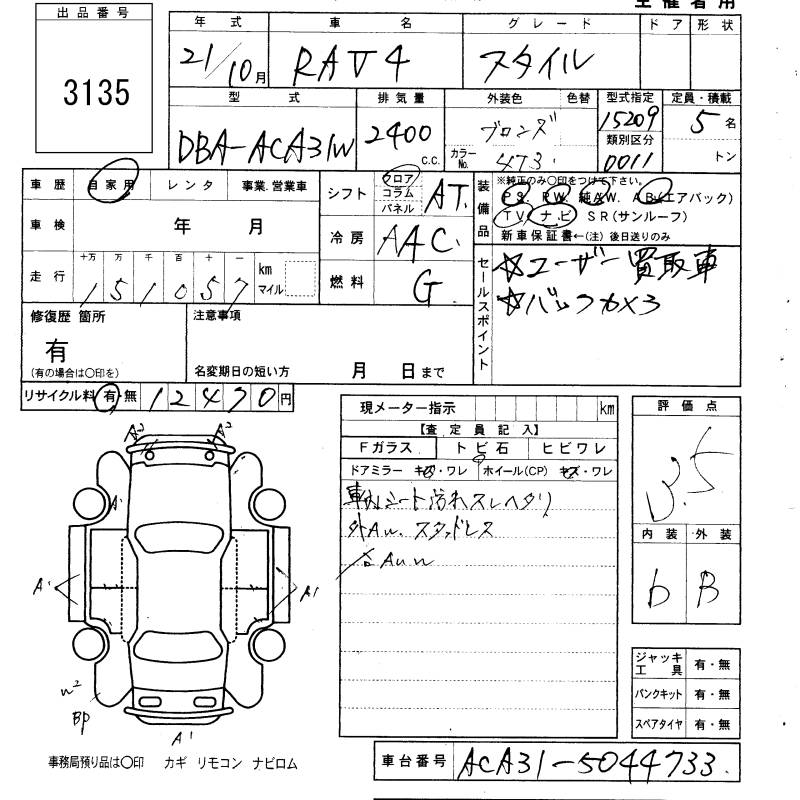 出品番号
3135
年式 車名 グレード ドア 形状
21/10月 RAV4 スタイル
型式 排気量 外装色 色替 型式指定 定員・積載
DBA-ACA31W 2400 c.c. ブロンズ 15209 5名
カラーNo. 473 類別区分 0011 トン
車歴 自家用 レンタ 事業.営業車
シフト フロア コラム パネル AT.
車検 年 月
冷房 AAC.
走行 十万 万 千 百 十 一 km マイル
151057
燃料 G.
装備品
※純正のみ〇印をつけて下さい。
PS. PW. 純AW. AB(エアバック)
TV ナビ SR(サンルーフ)
新車保証書←(注) 後日送りのみ
セールスポイント
☆ユーザー買取車
☆バックカメラ
修復歴 箇所
有
(有の場合は〇印を)
注意事項
名変期日の短い方 月 日まで
リサイクル料 有・無 12470円
現メーター指示 km
【査定員記入】
Fガラス トビ石 ヒビワレ
ドアミラー キズ・ワレ ホイール(CP) キズ・ワレ
シート汚れスレヘタリ
外Aw. スタッドレス
評価点
3.5
内装 外装
b B
ジャッキ工具 有・無
パンクキット 有・無
スペアタイヤ 有・無
A2 A2
A1
A1 A1
W2
BP
A1
事務局預り品は〇印 カギ リモコン ナビロム
車台番号 ACA31-5044733